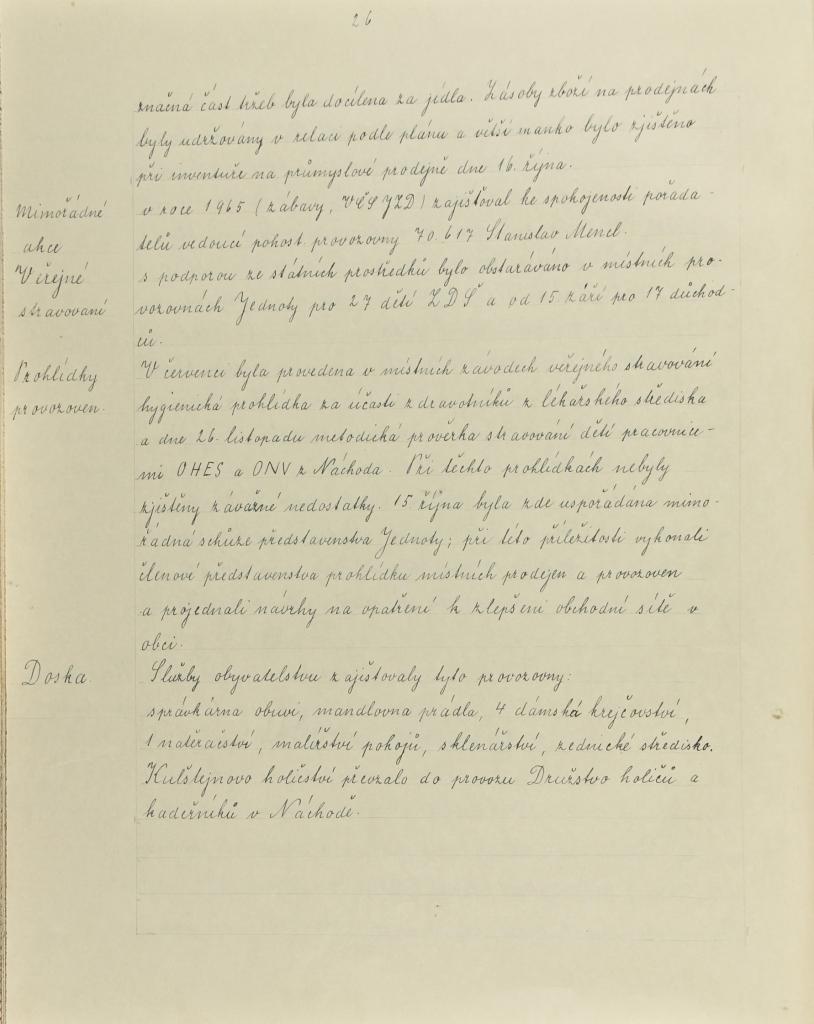 26
značná část tržeb byla docílena za jídla. Zásoby zboží na prodejnách
byly udržovány v relaci podle plánu a větší manko bylo zjištěno
při inventuře na průmyslové prodejně dne 16. října.
Mimořádné
akce
v roce 1965 (zábavy, VČS JZD) zajišťoval ke spokojenosti pořada-
telů vedoucí pohost. provozovny 70.617 Stanislav Mencl.
Veřejné
stravovaní
s podporou ze státních prostředků bylo obstaráváno v místních pro-
vozovnách Jednoty pro 27 dětí ZDŠ a od 15. září pro 17 důchod-
ců.
Prohlídky
provozoven.
V červenci byla provedena v místních závodech veřejného stravování
hygienická prohlídka za účasti zdravotníků z lékařského střediska
a dne 26. listopadu metodická prověrka stravování dětí pracovnice-
mi OHES a ONV z Náchoda. Při těchto prohlídkách nebyly
zjištěny závažné nedostatky. 15. října byla zde uspořádána mimo-
řádná schůze představenstva Jednoty; při této příležitosti vykonali
členové představenstva prohlídku místních prodejen a provozoven
a projednali návrhy na opatření k zlepšení obchodní sítě v
obci.
Doska.
Služby obyvatelstvu zajišťovaly tyto provozovny:
správkárna obuvi, mandlovna prádla, 4 dámská krejčovství,
1 natěračství, malířství pokojů, sklenářství, zednické středisko.
Kulštejnovo holičství převzalo do provozu Družstvo holičů a
kadeřníků v Náchodě.